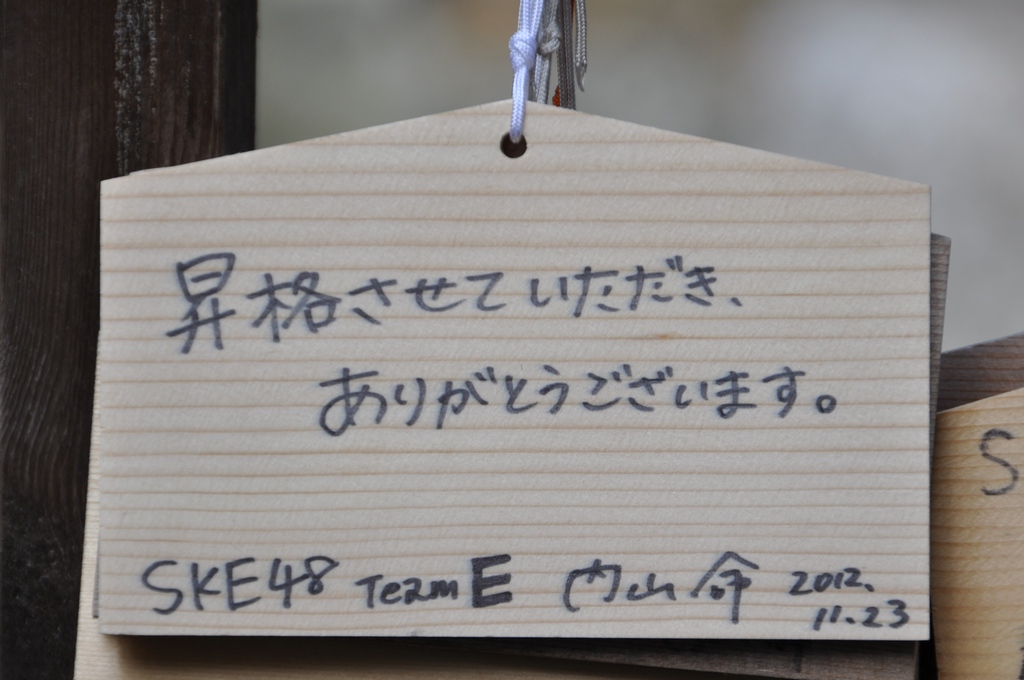 昇格させていただき、
ありがとうございます。
SKE48 Team E 内山命 2012.
11.23
S